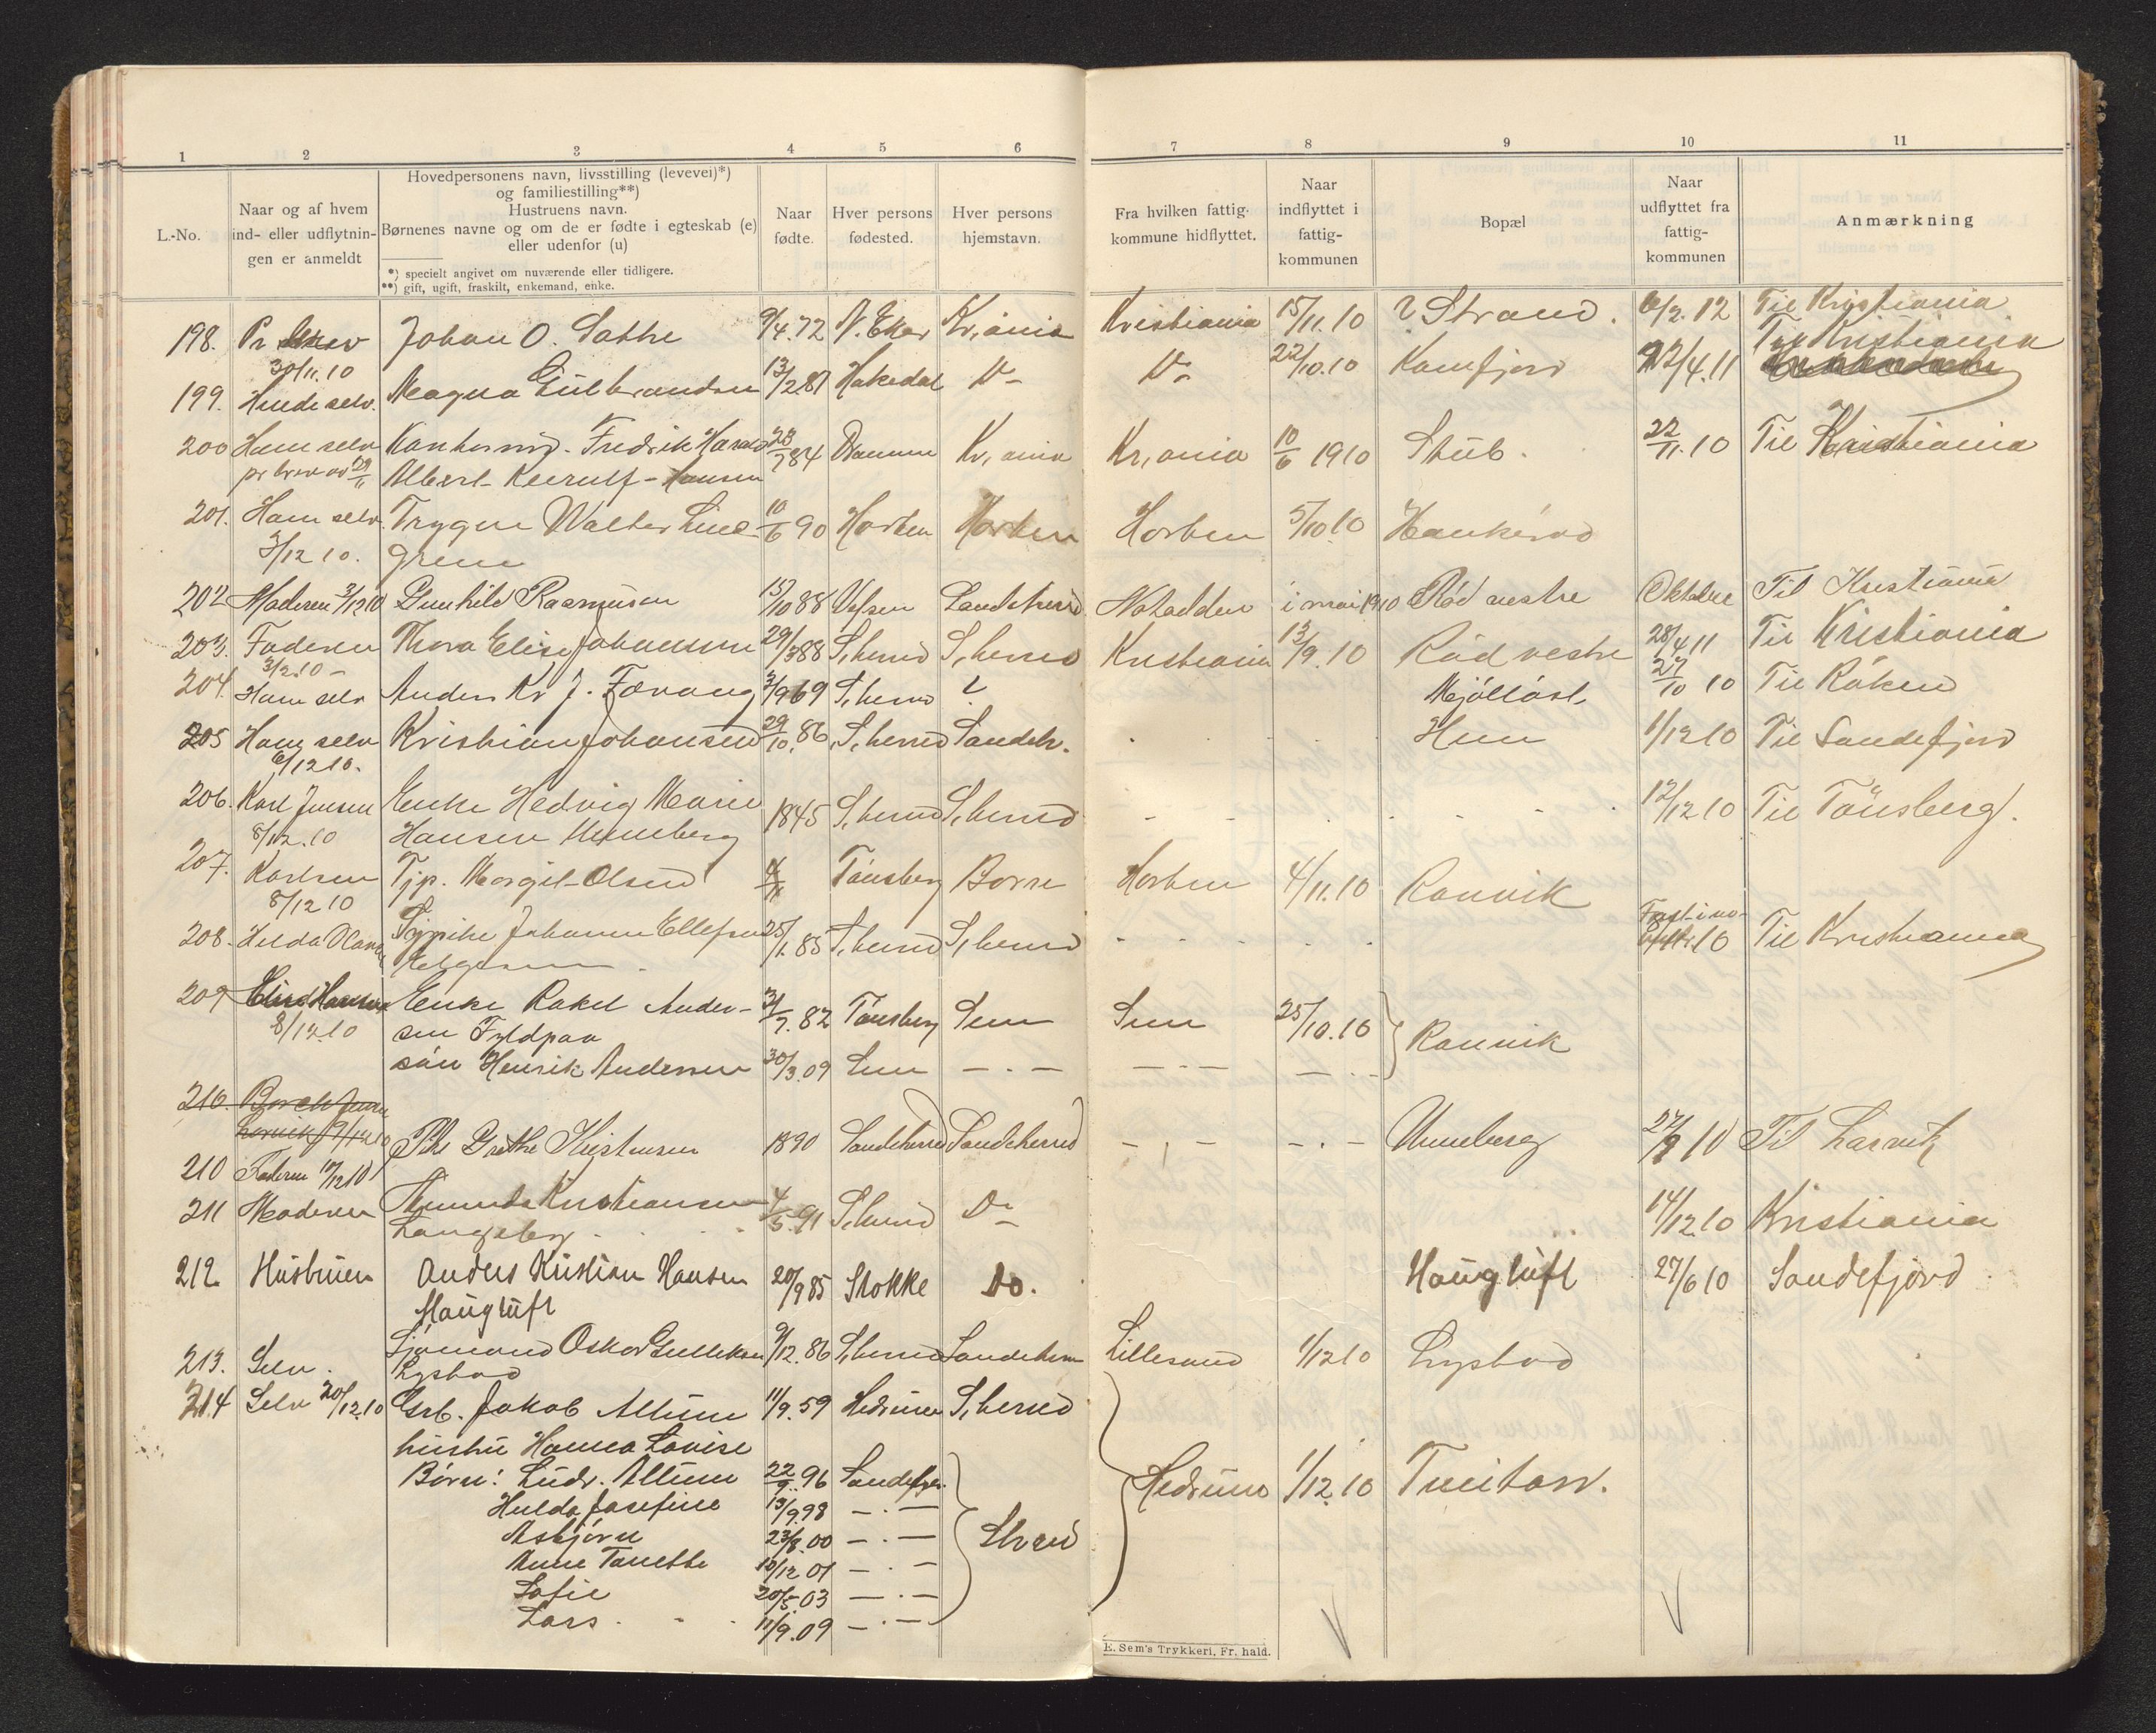 1 2 3 4 5 6 7 8 9 10 11
L.-No.
Naar og af hvem
ind- eller udflytnin-
gen er anmeldt
Hovedpersonens navn, livsstilling (levevei)*)
og familiestilling**)
Hustruens navn.
Børnenes navne og om de er fødte i egteskab (e)
eller udenfor (u)
*) specielt angivet om nuværende eller tidligere.
**) gift, ugift, fraskilt, enkemand, enke.
Naar
fødte.
Hver persons
fødested.
Hver persons
hjemstavn.
Fra hvilken fattig-
kommune hidflyttet.
Naar
indflyttet i
fattig-
kommunen
Bopæl
Naar
udflyttet fra
fattig-
kommunen
Anmærkning
198. Pr Johan O. Sathe 9/4.72 N. Eker Kr,ania Kristiania 15/11.10 ? Strand. 6/2.12 Til Kristiania
30/11.10 Til Kristiania
199. Hende selv. Magna Gulbrandsen 13/2 81 Hakedal Do Do 22/10.10 Kamfjord 22/4.11
200 Ham selv Kontormd. Fredrik Harald 23/7 84 Drammen Kr,ania Kr,ania 10/6 1910 Stub. 22/11.10 Til Kristiania
pr brev av 29/11 Albert Hansen
201. Ham selv Trygve Walter Lind- 10/6 90 Horten Horten Horten 5/10 10 Haukerød
3/12 10. gren
202 Moderen 3/12 10 Gunhild Rasmussen 15/10 88 Vefsen Sandeherred Notodden i mai 1910 Rød vestre Oktober Til Kristiania
203. Faderen Thora Elise Johannsen 29/3 88 S,herred S,herred Kristiania 13/9.10 Rød vestre 28/4 11 Til Kristiania
3/12.10
204. Ham selv Anders Kr J. Fævang 3/9 69 S,herred ? Mjølløst. 27/10 10 Til Røken
205 Ham selv Kristian Johansen 29/10.86 S,herred Sandeh. Hem 1/12 10 Til Sandefjord
6/12 10.
206. Karl Jensen Enke Hedvig Marie 1845 S,herred S,herred 12/12 10 Til Tønsberg.
8/12.10 Hansen Unneberg
207. Karlsen Tjp. Margit Olsen Tønsberg Borre Horten 4/11.10 Ranvik
8/12 10
208. Hilda Sypike Johanne Ellefsen 25/1.85 S,herred S,herred 10 Til Kristiania
Helgesen
209 Hansen Enke Rakel Ander- 3/7.82 Tønsberg Sem Sem 25/10.10 Ranvik
8/12.10 sen Fyldpaa
søn Henrik Andersen 30/3.09 Sem
210. Borch
9/12 10 Grethe Kristensen 1890 Sandeherred Sandeherred Unneberg 27/9 10 Til Larvik
210 Faderen 10/12 10
211 Moderen Amunda Kristiansen 4/5.91 S,herred Do 14/12.10 Kristiania
Langeby
212 Husbruen Anders Kristian Hansen 20/9 85 Stokke Do. Haugtuft 27/6 10 Sandefjord
Haugtuft
213. Selv. Sjømand Oskar Gulleksen 9/12.86 S,herred Sandeherr Lillesand 1/12 10 Lystad
Lystad
214 Selv 20/12.10 Grb. Jakob Allum 11/9.59 Hedrum S,herred
hustru Hanna Lovise
Børn: Ludv. Allum 22/9.96 Sandefj. Hedrum 1/12.10 Tveitan.
Hulda Josefine 13/9.98
Asbjørn 23/8.00 S,herred
Anne Tanette 10/12 01
Sofie 20/5 03
Lars 11/9.09
E. Sem's Trykkeri, Fr. hald.